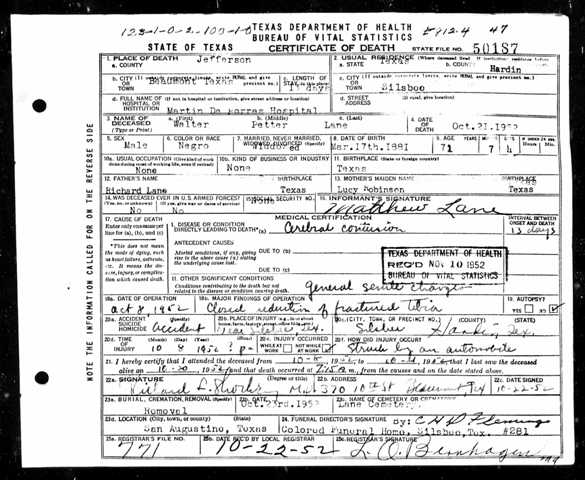 123-1-0-2-103-1-0 TEXAS DEPARTMENT OF HEALTH 47
BUREAU OF VITAL STATISTICS
STATE OF TEXAS CERTIFICATE OF DEATH STATE FILE NO. 50187
1. PLACE OF DEATH 2. USUAL RESIDENCE
a. COUNTY Jefferson a. STATE Texas b. COUNTY Hardin
b. CITY OR TOWN Beaumont Texas c. LENGTH OF STAY days c. CITY OR TOWN Silsbee
d. FULL NAME OF HOSPITAL OR INSTITUTION Martin De Porras Hospital d. STREET ADDRESS (If rural, give location)
3. NAME OF DECEASED (Type or Print) a. (First) Walter b. (Middle) Petter c. (Last) Lane 4. DATE OF DEATH Oct.21.1952
5. SEX Male 6. COLOR OR RACE Negro 7. MARRIED, NEVER MARRIED, WIDOWED, DIVORCED (Specify) Widowed 8. DATE OF BIRTH Mar.17th.1881 71 7 4
10a. USUAL OCCUPATION None 10b. KIND OF BUSINESS OR INDUSTRY None 11. BIRTHPLACE (State or foreign country) Texas
12. FATHER'S NAME Richard Lane BIRTHPLACE Texas 13. MOTHER'S MAIDEN NAME Lucy Robinson BIRTHPLACE Texas
14. WAS DECEASED EVER IN U.S. ARMED FORCES? No No SOCIAL SECURITY NO. INFORMANT'S SIGNATURE Matthew Lane
17. CAUSE OF DEATH MEDICAL CERTIFICATION INTERVAL BETWEEN ONSET AND DEATH
Enter only one cause per line for (a), (b), and (c) I. DISEASE OR CONDITION DIRECTLY LEADING TO DEATH*(a) Cerebral contusion 13 days
ANTECEDENT CAUSES
*This does not mean the mode of dying, such as heart failure, asthenia, etc. It means the disease, injury, or complication which caused death. Morbid conditions, if any, giving rise to the above cause (a) stating the underlying cause last. DUE TO (b) DUE TO (c)
TEXAS DEPARTMENT OF HEALTH
REC'D NOV 10 1952
BUREAU OF VITAL STATISTICS
II. OTHER SIGNIFICANT CONDITIONS
Conditions contributing to the death but not related to the disease or condition causing death. General senile changes
18a. DATE OF OPERATION Oct 8 1952 18b. MAJOR FINDINGS OF OPERATION Closed reduction of fractured tibia 19. AUTOPSY? YES NO
20a. ACCIDENT SUICIDE HOMICIDE Accident 20b. PLACE OF INJURY Near Silsbee Tex. (CITY, TOWN, OR PRECINCT NO.) Silsbee (COUNTY) Hardin (STATE) Tex.
20d. TIME OF INJURY 10 8 1952 20e. INJURY OCCURRED WHILE AT WORK NOT WHILE AT WORK 20f. HOW DID INJURY OCCUR? Struck by an automobile
21. I hereby certify that I attended the deceased from 10-8 1952, to 1952, that I last saw the deceased
alive on 10-20 1952, and that death occurred at 7:15 A.m., from the causes and on the date stated above.
22a. SIGNATURE (Degree or title) M.D. 22b. ADDRESS 370 10th St Beaumont Tex 22c. DATE SIGNED 10-22-52
23a. BURIAL, CREMATION, REMOVAL (Specify) Removal 23b. DATE Oct.23rd.1952 23c. NAME OF CEMETERY OR CREMATORY Lane Cemetery
23d. LOCATION (City, town, or county) (State) San Augustine, Texas 24. FUNERAL DIRECTOR'S SIGNATURE by: C H D Fleming
Colored Funeral Home, Silsbee, Tex. #281
25a. REGISTRAR'S FILE NO. 771 25b. DATE REC'D BY LOCAL REGISTRAR 10-22-52 25c. REGISTRAR'S SIGNATURE
NOTE THE INFORMATION CALLED FOR ON THE REVERSE SIDE